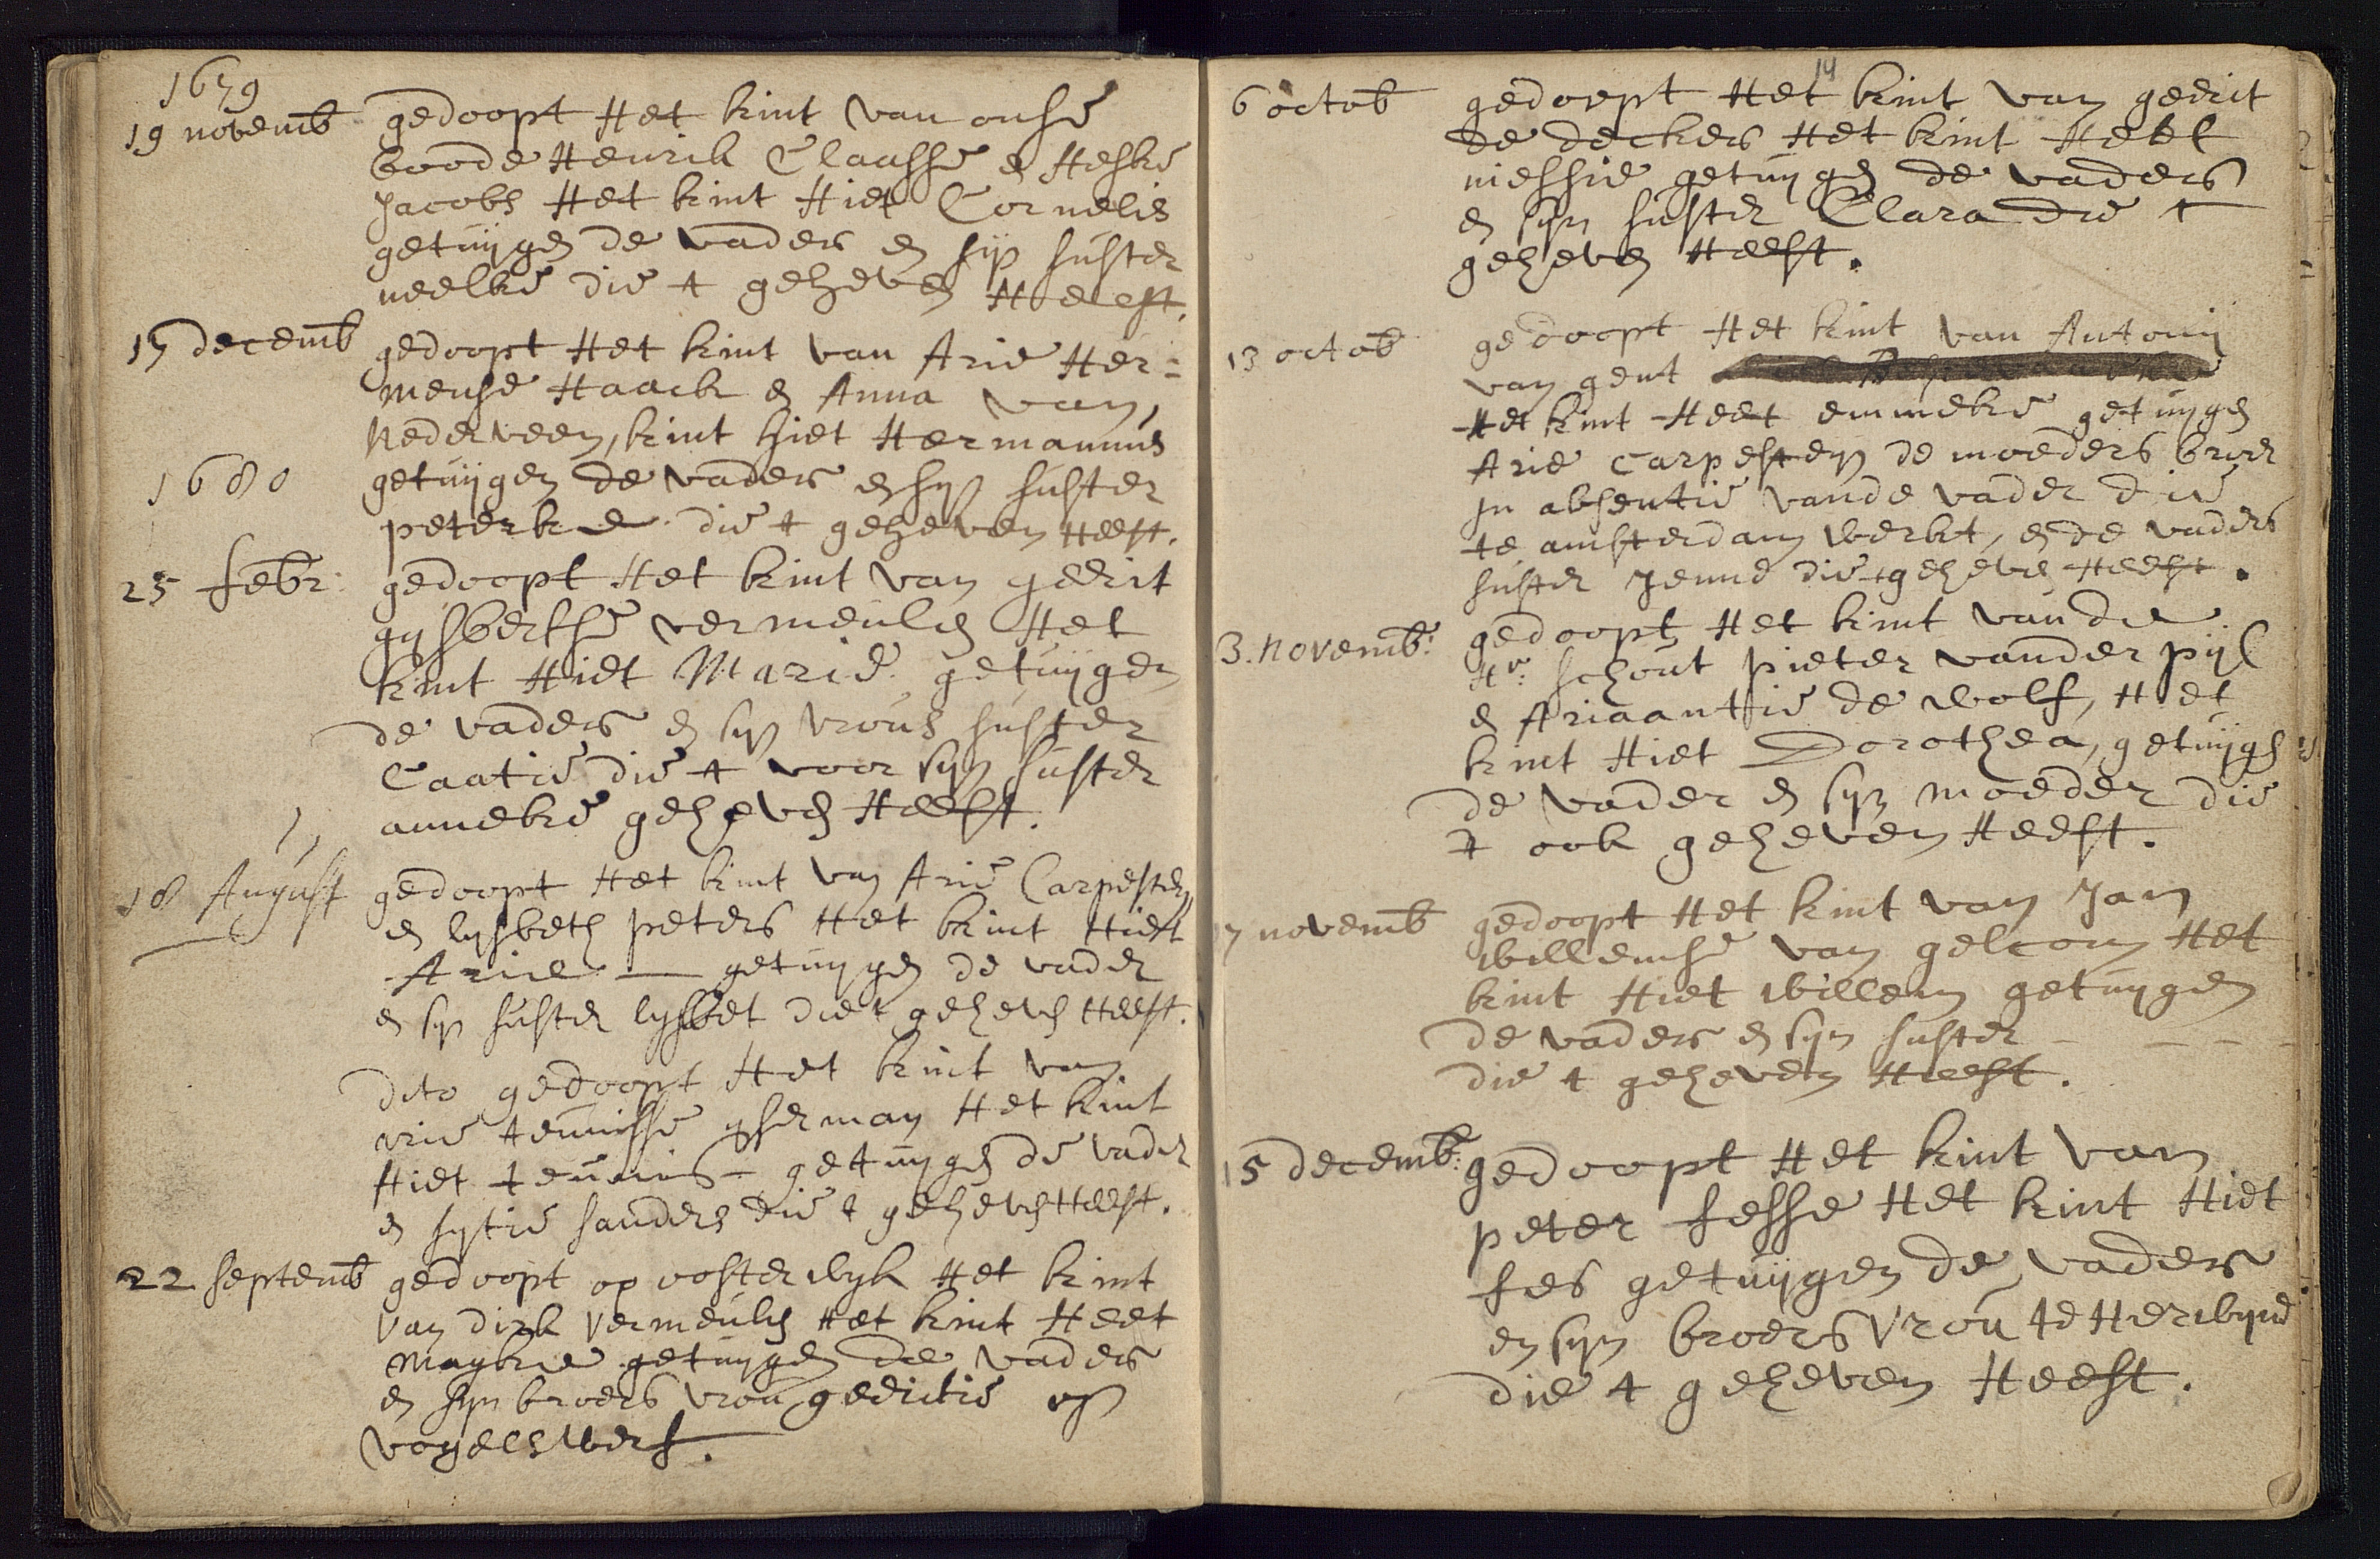 1679
19 novemb gedoopt Het kint van onse
boode Henrik Claasse en Heske
Jacobs Het kint Hiet Cornelis
getuijgen de vader en sijn suster
neelke die t geheven Heeft.
17 decemb gedoopt Het kint van Arie Her=
mense Haack en Anna van
Nederveen, kint hiet Hermannus
1680 getuijgen de vader en sijn suster
peterke die t geheven Heeft.
25 febr: gedoopt Het kint van geerit
gijsbertse vermeulen Het
kint Hiet Marie getuijgen
de vader en sijn vrous suster
Caatie die t voor sijn suster
anneke geheven Heeft.
18 August gedoopt Het kint van Arie Carpesteijn
en lijsbeth peters Het kint Hiet
Arie — getuijgen de vader
en sijn suster lijsbet die t geheven Heeft.
dito gedoopt Het kint van
arie teunisse Het kint
Hiet teunis - getuijgen de vader
en sijtie sanders die t geheven Heeft.
22 septemb gedoopt op oosterwijk Het kint
van dirk vermeulen Het kint Heet
Maijke getuijgen de vader
en sijn broers vrou geeritie op
vogelswerf.
14
6 octob gedoopt Het kint van geerit
de decker Het kint Heet
niessie getuijgen de vader
en sijn suster Clara die t
geheven Heeft.
13 octob gedoopt Het kint van Antonij
van gent
Het kint Heet emmeke getuijgen
Arie Carpesteijn de moeders broer
in absentie vande vader die
te amsterdam werkt, en de vaders
suster Jenne die t geheven Heeft.
3. novemb: gedoopt Het kint vande
Hr: schout pieter vander pijl
en Ariaantie de wolf, Het
kint Hiet Dorothea, getuijgen
de vader en sijn moeder die
t ook geheven Heeft.
17 novemb gedoopt Het kint van Jan
willemse van gelcom Het
kint Hiet willem getuijgen
de vader en sijn suster - - - -
die t geheven Heeft.
15 decemb: gedoopt Het kint van
peter fesse Het kint Hiet
fes getuijgen de vader
en sijn broers vrou te Herwijne
die t geheven Heeft.